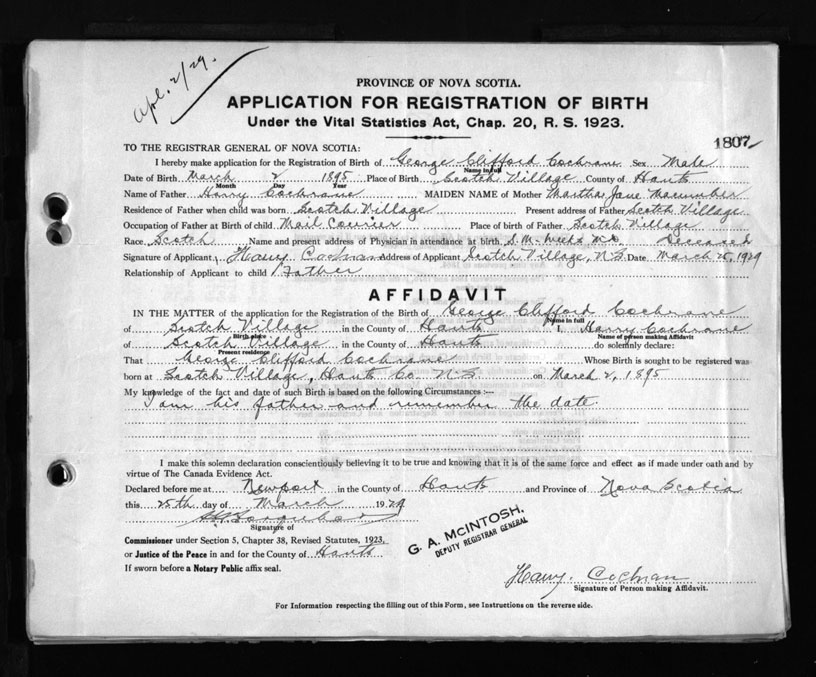 Apl. 2/29.
PROVINCE OF NOVA SCOTIA.
APPLICATION FOR REGISTRATION OF BIRTH
Under the Vital Statistics Act, Chap. 20, R. S. 1923.
1807
TO THE REGISTRAR GENERAL OF NOVA SCOTIA:
I hereby make application for the Registration of Birth of George Clifford Cochrane Sex Male
Name in full
Date of Birth March 2 1895 Place of Birth Scotch Village County of Hants
Month Day Year
Name of Father Harry Cochrane MAIDEN NAME of Mother Martha Jane Macumber
Residence of Father when child was born Scotch Village Present address of Father Scotch Village
Occupation of Father at Birth of child Mail Courier Place of birth of Father Scotch Village
Race Scotch Name and present address of Physician in attendance at birth S. M. Weeks M.D. Deceased
Signature of Applicant Harry Cochran Address of Applicant Scotch Village, N.S. Date March 25, 1929
Relationship of Applicant to child Father
AFFIDAVIT
IN THE MATTER of the application for the Registration of the Birth of George Clifford Cochrane
Name in full
of Scotch Village in the County of Hants I, Harry Cochrane
Birth place Name of person making Affidavit
of Scotch Village in the County of Hants do solemnly declare:
Present residence
That George Clifford Cochrane Whose Birth is sought to be registered was
born at Scotch Village, Hants Co. N.S. on March 2, 1895
My knowledge of the fact and date of such Birth is based on the following Circumstances :—
I am his father and remember the date
I make this solemn declaration conscientiously believing it to be true and knowing that it is of the same force and effect as if made under oath and by
virtue of The Canada Evidence Act.
Declared before me at Newport in the County of Hants and Province of Nova Scotia
this 25th day of March 1929
Signature of
Commissioner under Section 5, Chapter 38, Revised Statutes, 1923,
or Justice of the Peace in and for the County of Hants
If sworn before a Notary Public affix seal.
G. A. McINTOSH,
DEPUTY REGISTRAR GENERAL
Harry Cochran
Signature of Person making Affidavit.
For Information respecting the filling out of this Form, see Instructions on the reverse side.